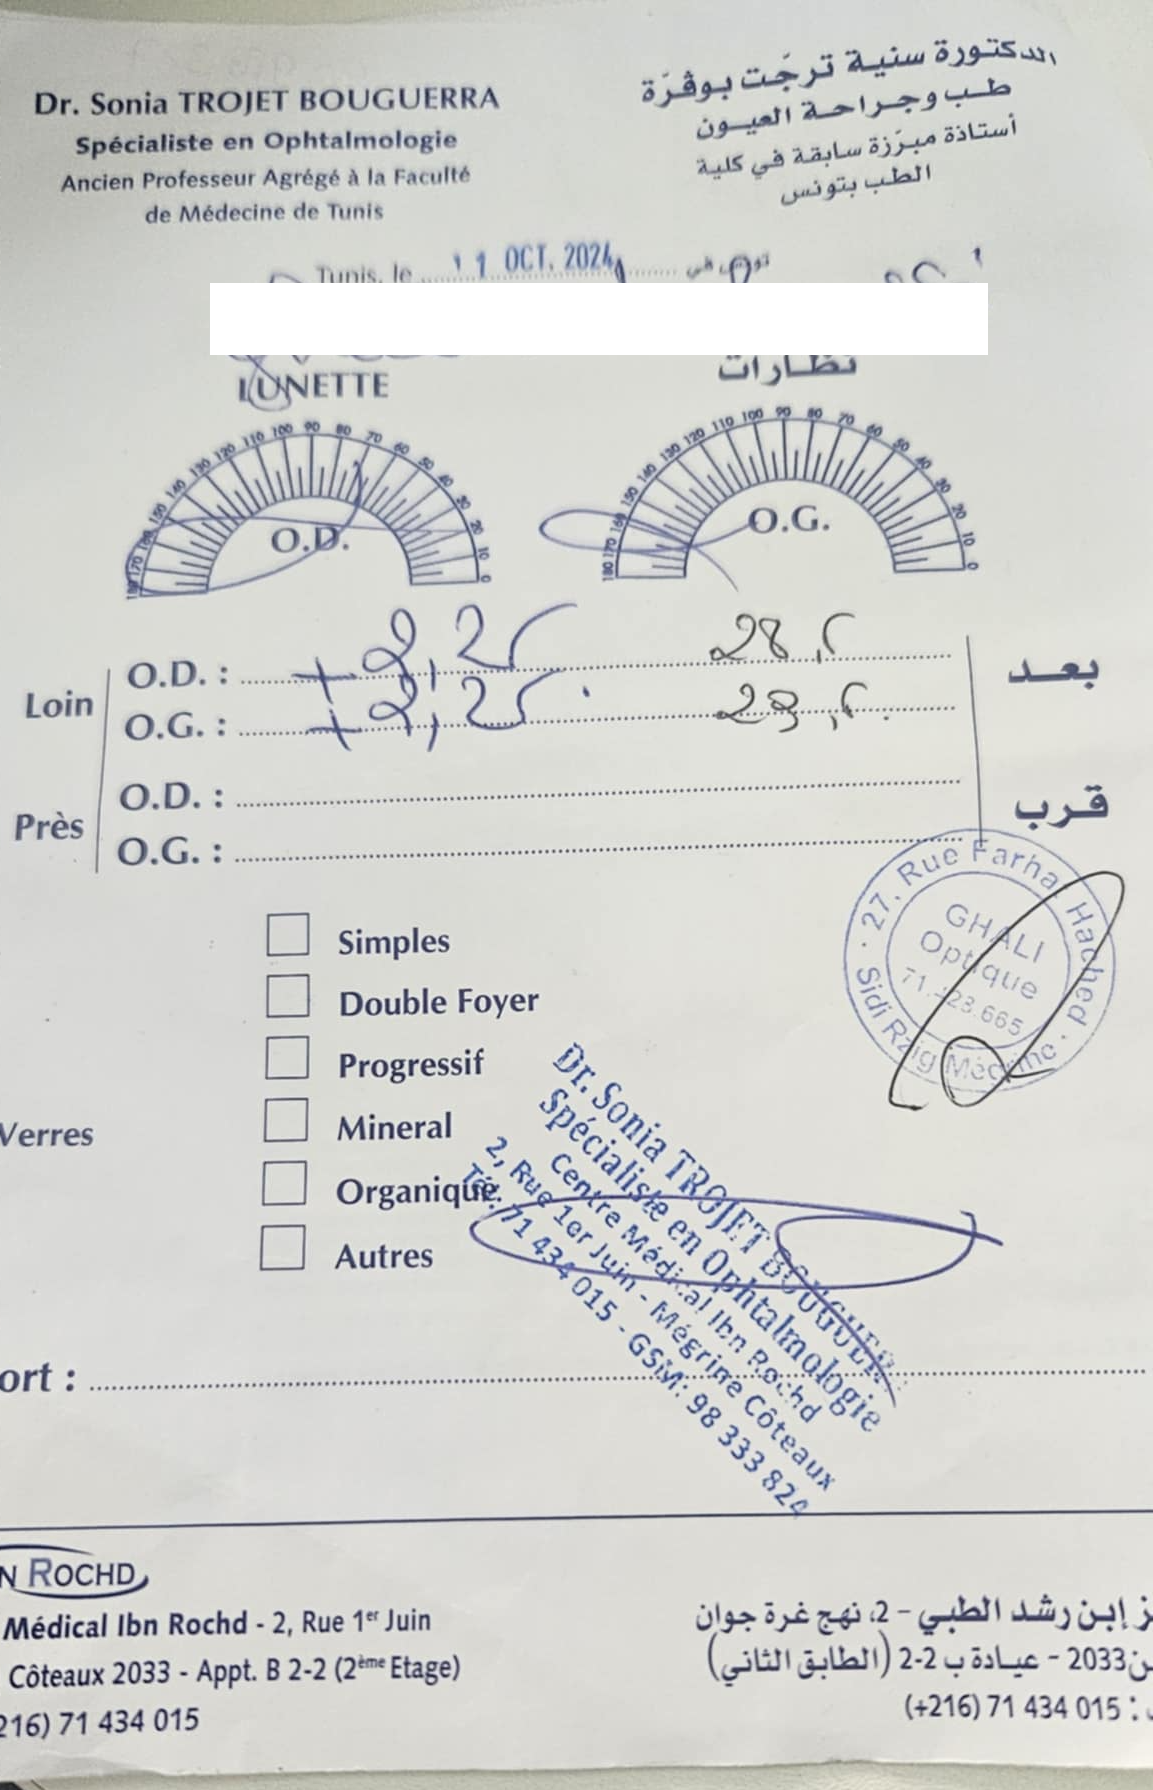 Dr. Sonia TROJET BOUGUERRA
Spécialiste en Ophtalmologie
Ancien Professeur Agrégé à la Faculté
de Médecine de Tunis
الدكتورة سنية ترجّت بوڨرّة
طب وجراحة العيون
أستاذة مبرّزة سابقة في كلية
الطب بتونس
Tunis, le 11 OCT. 2024 تونس في
LUNETTE نظارات
180 170 160 150 140 130 120 110 100 90 80 70 60 50 40 30 20 10 0
O.D.
180 170 160 150 140 130 120 110 100 90 80 70 60 50 40 30 20 10 0
O.G.
Loin
O.D. : +2,25 28,5
O.G. : +2,25 29,5
بعد
Près
O.D. :
O.G. :
قرب
27, Rue Farhat Hached
GHALI
Optique
71.423.665
Sidi Rzig Mégrine
Verres
Simples
Double Foyer
Progressif
Mineral
Organique
Autres
Dr. Sonia TROJET BOUGUERRA
Spécialiste en Ophtalmologie
Centre Médical Ibn Rochd
2, Rue 1er Juin - Mégrine Côteaux
Tél: 71 434 015 - GSM: 98 333 824
ort :
N ROCHD
Médical Ibn Rochd - 2, Rue 1er Juin
Côteaux 2033 - Appt. B 2-2 (2ème Etage)
216) 71 434 015
ز إبن رشد الطبي - 2، نهج غرة جوان
ن 2033 - عيادة ب 2-2 (الطابق الثاني)
: 015 434 71 (216+)